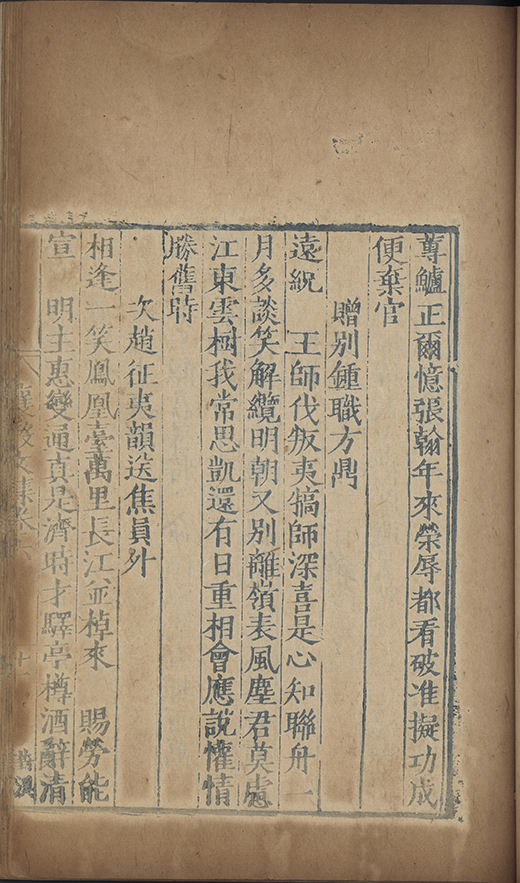 蓴鱸正爾憶張翰年來榮辱都看破准擬功成
便棄官
贈別鍾職方鼎
遠統 王師伐叛夷犒師深喜是心知聯舟一
月多談笑解纜明朝又別離嶺表風塵君莫慮
江東雲樹我常思凱還有日重相會應說懽情
勝舊時
次趙征夷韻送焦員外
相逢一笑鳳凰臺萬里長江並棹來 賜勞能
宣 明主惠變通真是濟時才驛亭樽酒辭清